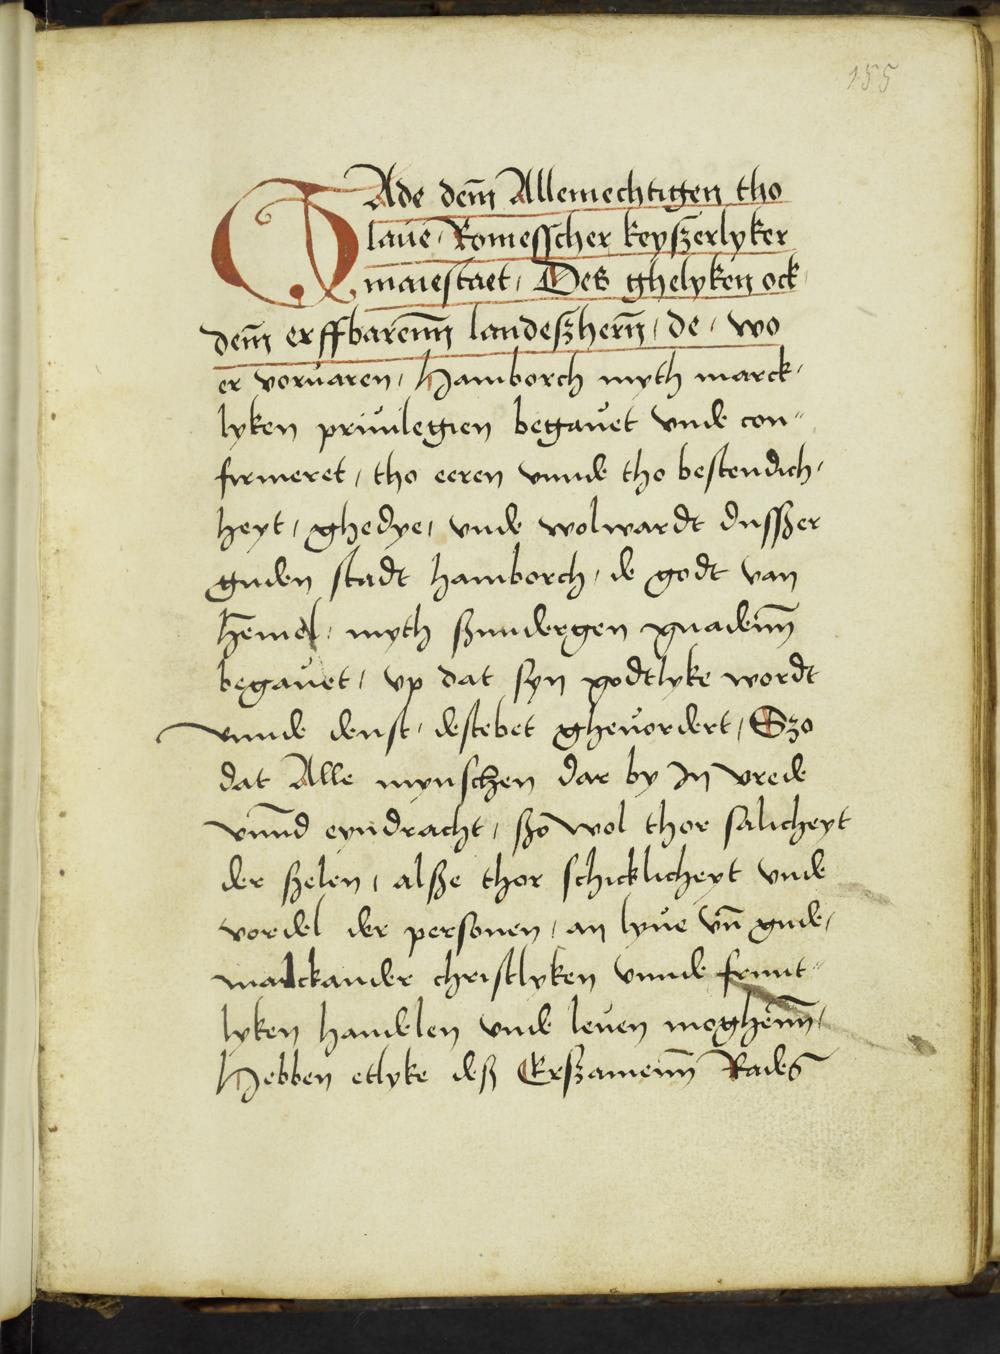 155
GAde dem̄ Allemechtigen tho
laue͞ Romesscher keyßerlyker
maiestaet, Des ghelyken ock
dem̄ erffbarenn̄ landeßhern̄, de, wo
er voruaren, Hamborch myth marck,
lyken priuilegien begauet vnde con"
firmeret, tho eeren vnnde tho bestendich,
heyt, ghedye, vnde wolwardt dusßer
guden stadt hamborch, de godt van
hemel, myth ßundergen gnadenn̄
begauet, vp dat syn godtlyke wordt
vnnde denst, destebet gheuordert, Szo
dat Alle mynschen dar by In vrede
vnn̄d eyndracht, ßo wol thor salicheyt
der ßelen, alße thor schicklicheyt vnde
vordel der personen, an lyue vn̄ gude,
malckander christlyken vnnde frunt"
lyken handelen vnde leuen moghenn̄,
Hebben etlyke deß Erßamenn̄ Rades